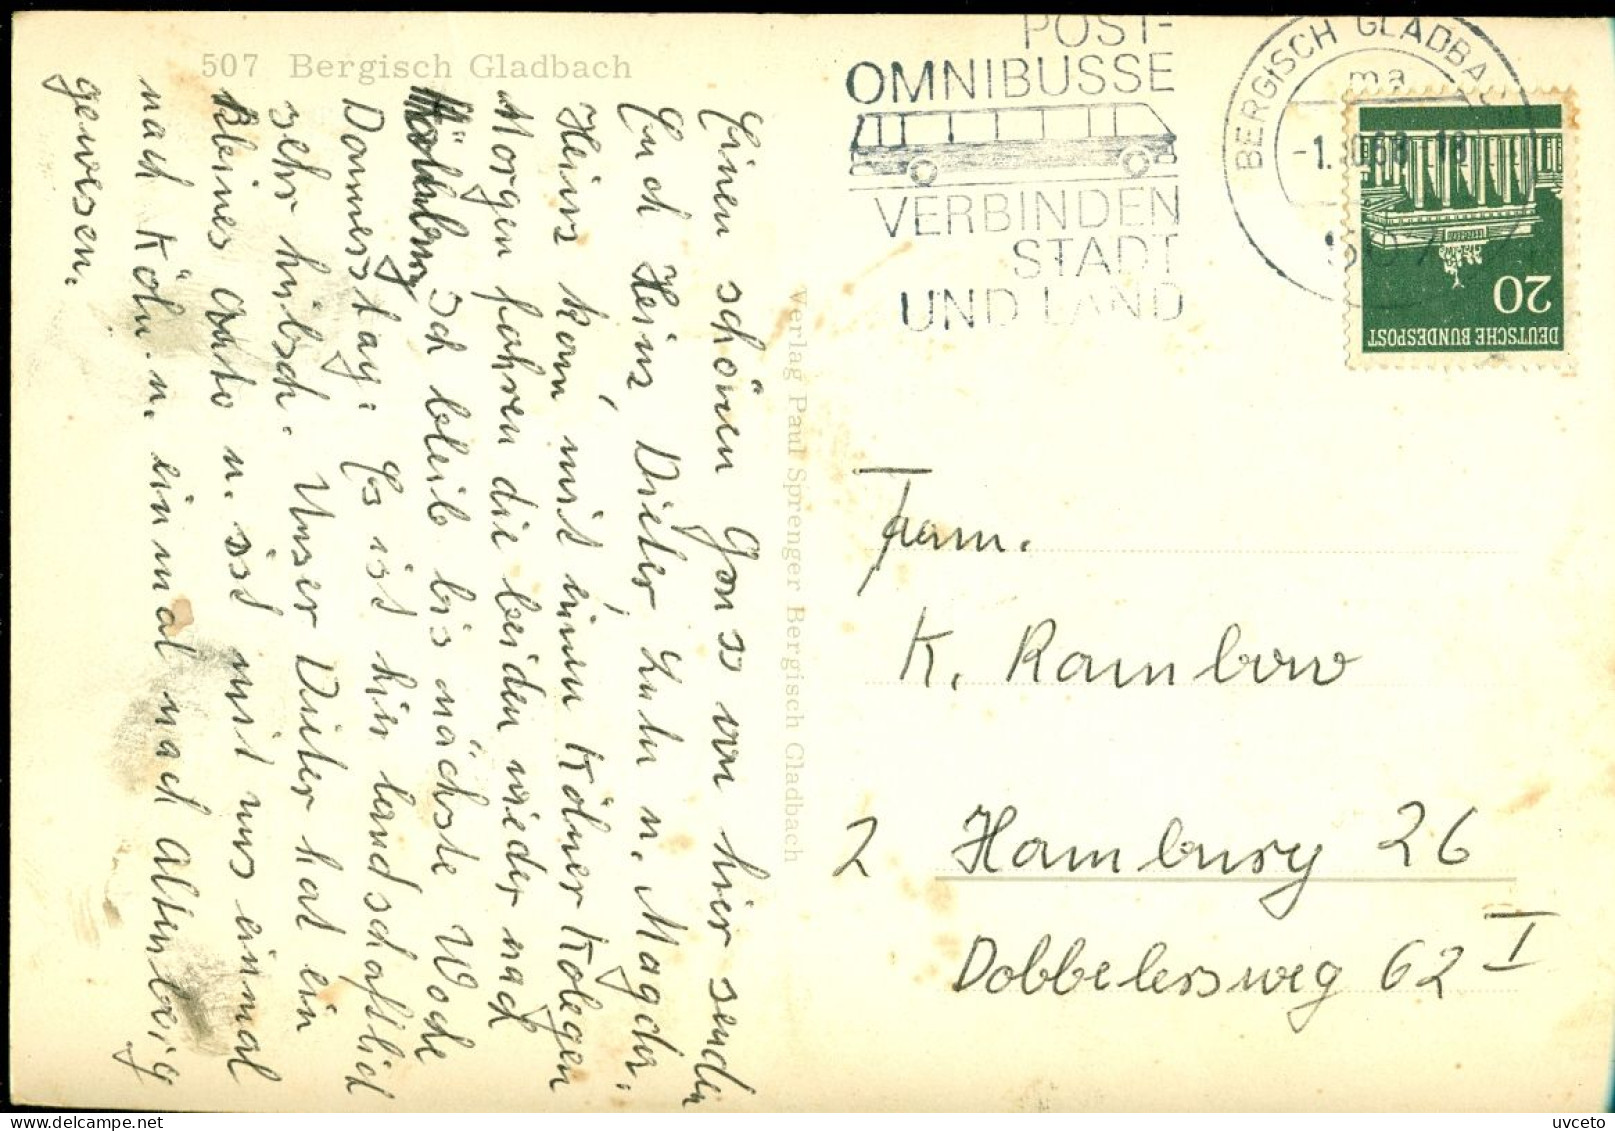 507 Bergisch Gladbach
Einen schönen Gruss von hier senden
Euch Heinz, Dieter, Lulu u. Magdr.
Heinz kam mit einem Kölner Kolegen
Morgen fahren die beiden wieder nach
ich bleib bis nächste Woche
Donnerstag. Es ist hier landschaftlich
sehr hübsch. Unser Dieter hat ein
kleines Auto u. ist mit uns einmal
nach Köln u. einmal nach Altenberg
gewesen.
Verlag Paul Sprenger Bergisch Gladbach
POST-
OMNIBUSSE
VERBINDEN
STADT
UND LAND
BERGISCH GLADBA
ma
20
DEUTSCHE BUNDESPOST
Fam.
K. Rambow
2 Hamburg 26
Dobbelersweg 62 I
uvceto